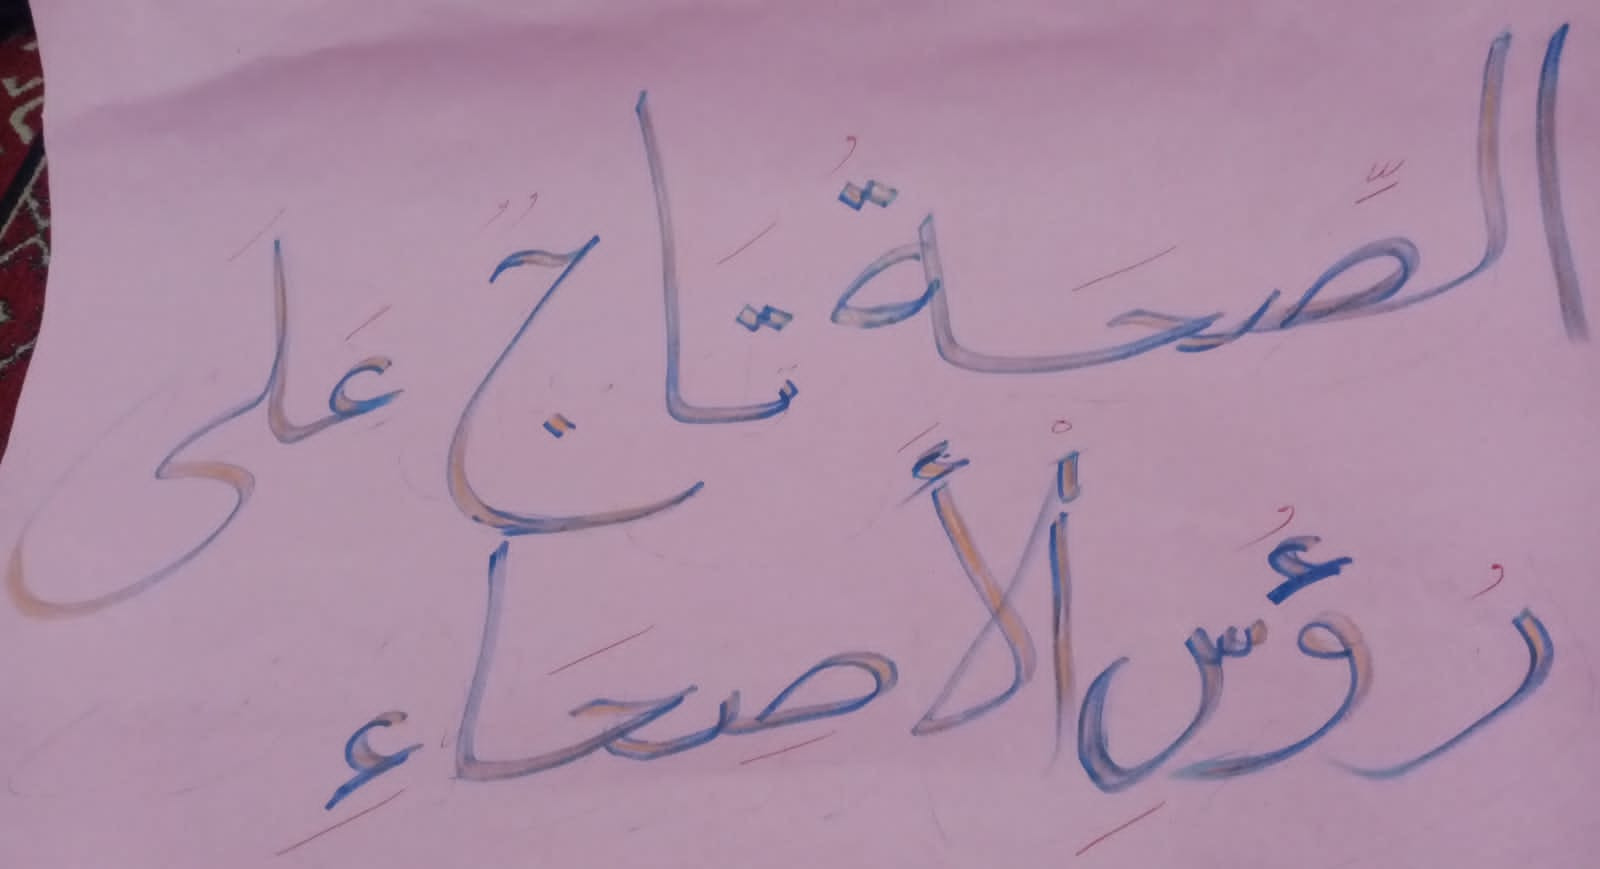 الصَّحَةُ تَاجٌ عَلَى
رُؤُسِ ألْأَصِحَاءِ